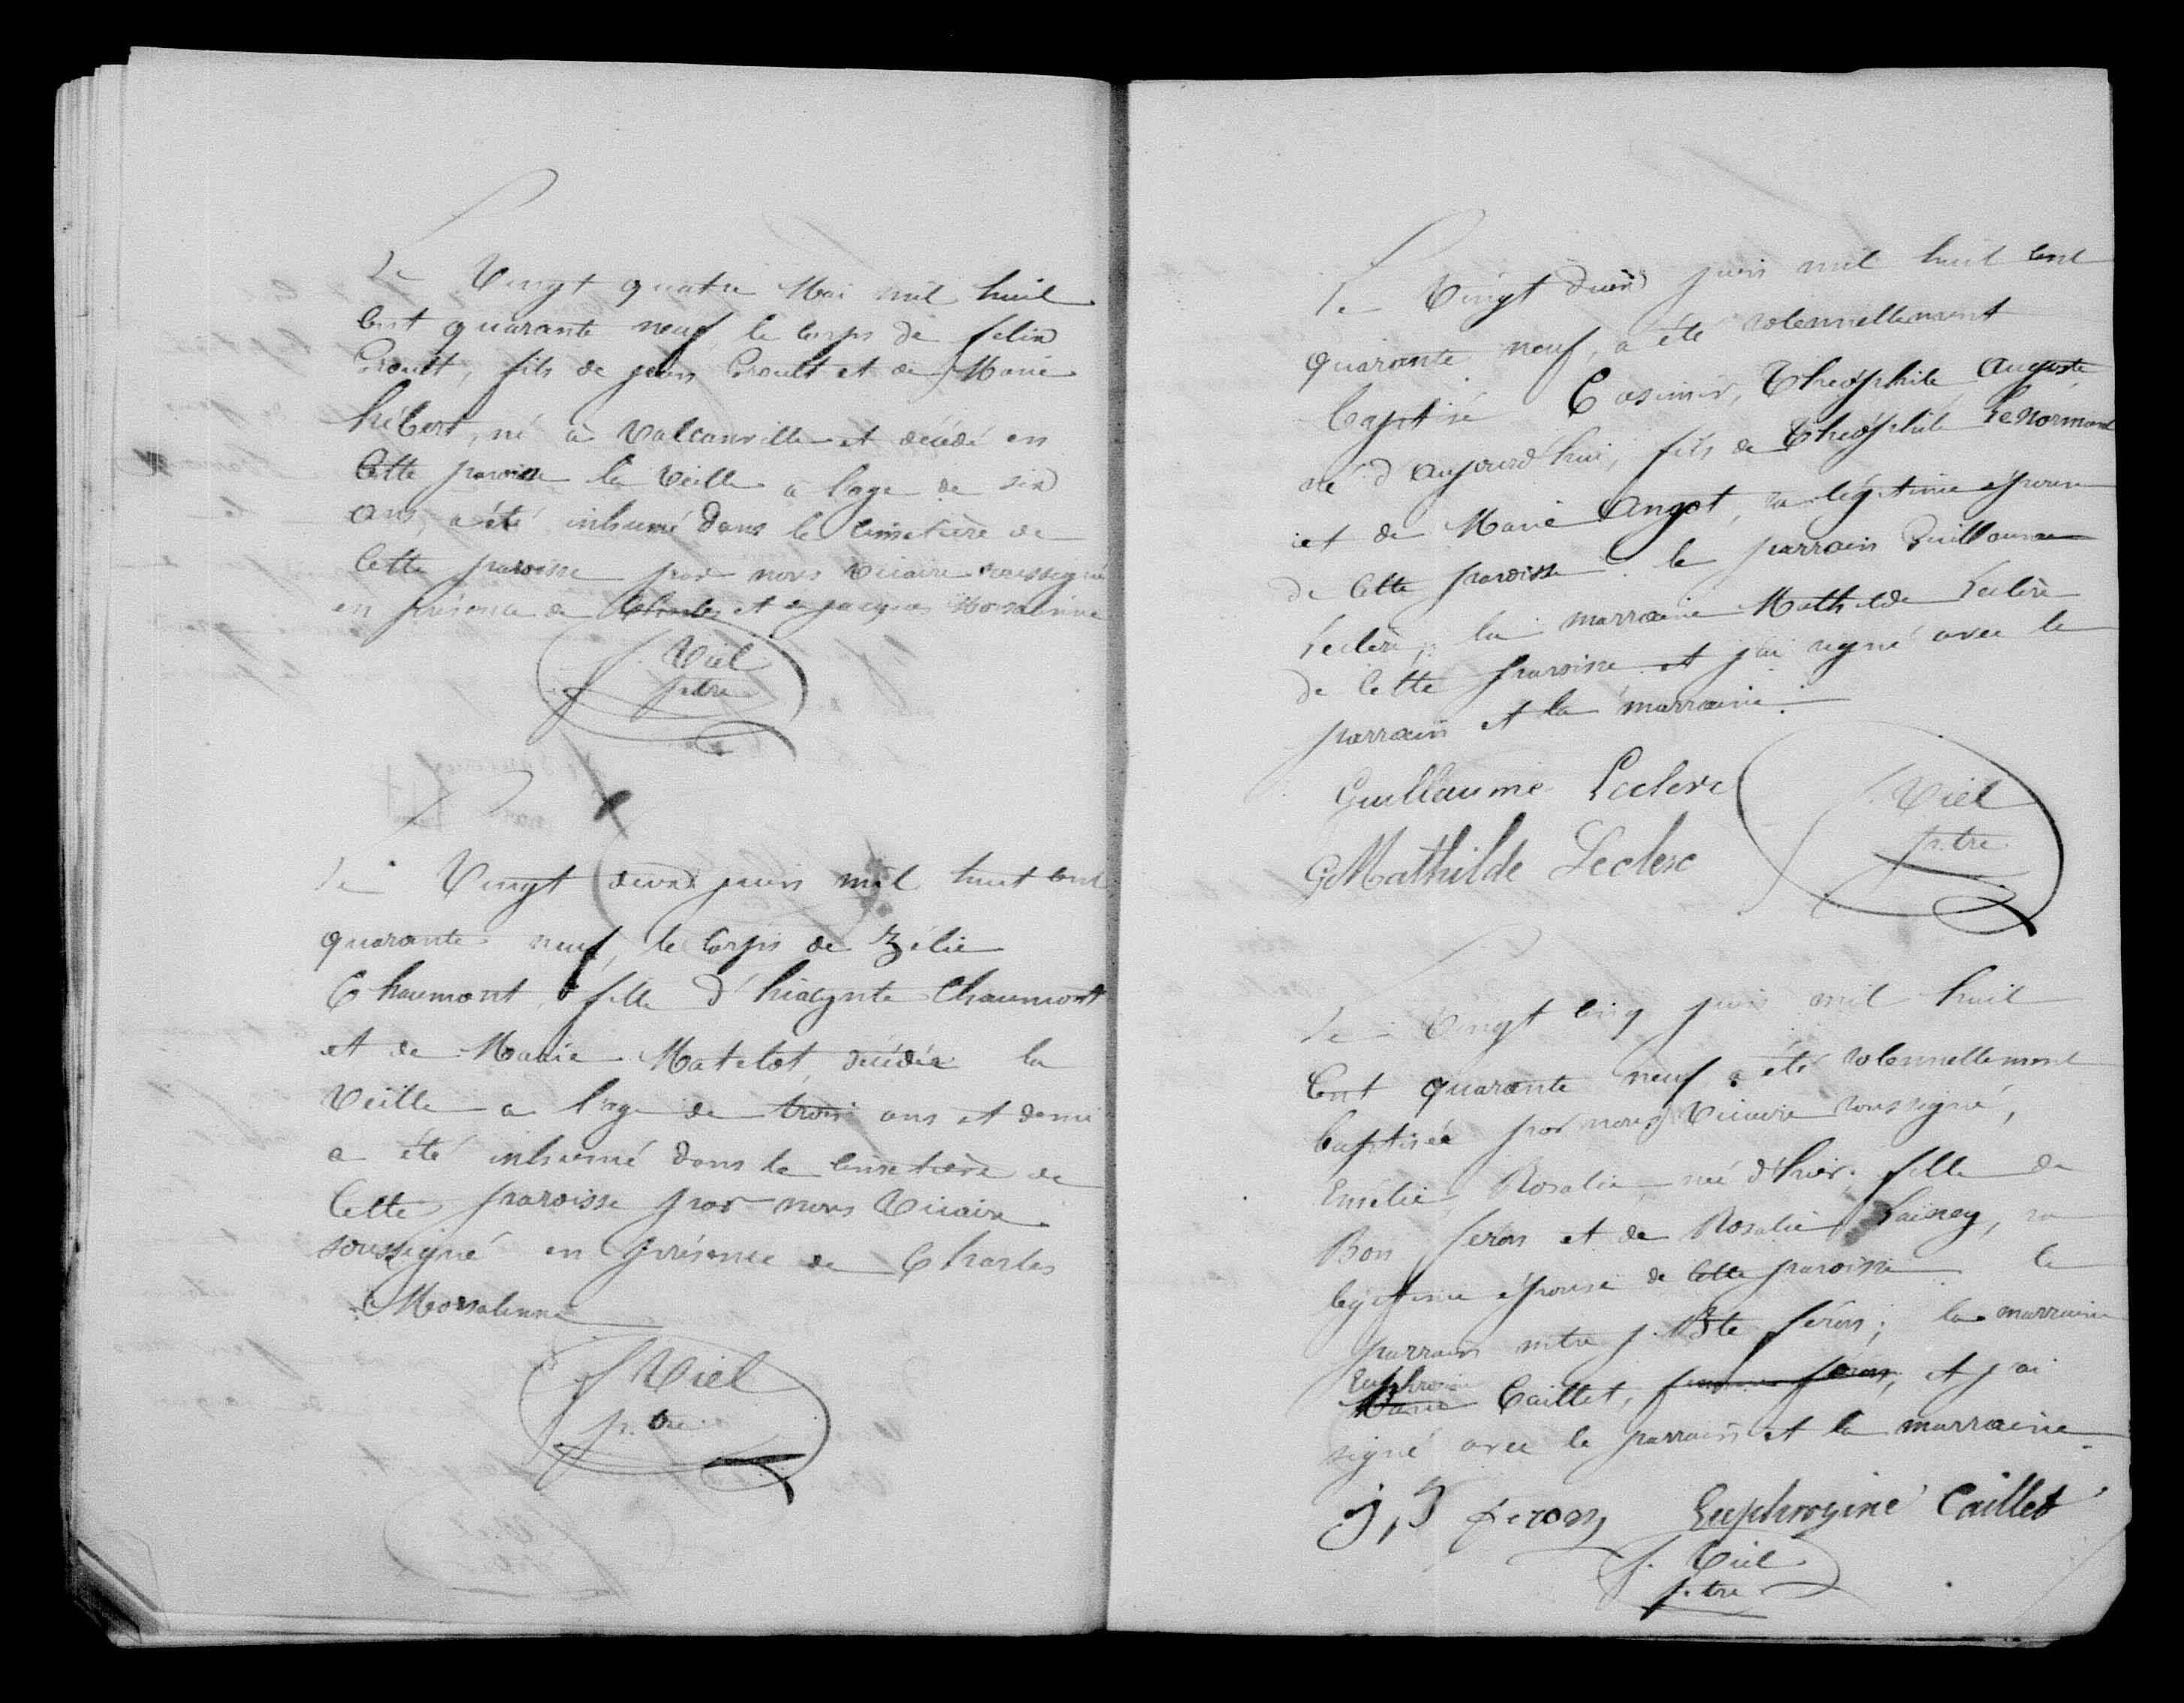 Le Vingt quatre Mai mil huit
Cent quarante neuf le Corps de felix
Croult, fils de jean Croult et de Marie
hébert, né à Valcanville et décédé en
Cette paroisse la veille à l'age de six
ans, a été inhumé dans le Cimetière de
Cette paroisse par nous Vicaire soussigné
en présence de Charles et de jacques Morsalinne
Viel
ptre
Le Vingt deux juin mil huit cent
quarante neuf, le Corps de Zélie
Chaumont, fille d'hiacynte Chaumont
et de Marie Matelot, décédée la
Veille a l'age de trois ans et demi
a été inhumé dans le Cimetière de
Cette paroisse par nous Vicaire
soussigné en présence de Charles
Morsalinne
Viel
ptre
Le Vingt deux juin mil huit cent
quarante neuf, a été solennellement
baptisé Casimir, Théophile, Auguste
né d'aujourd'hui, fils de Théophile LeNormand
et de Marie Angot, sa légitime épouse
de Cette paroisse. le parrain Guillaume
Leclerc, la marraine Mathilde Leclerc
de Cette paroisse et j'ai signé avec le
parrain et la marraine.
Guillaume Leclerc
Mathilde Leclerc
Viel
p.tre
Le Vingt Cinq juin mil huit
Cent quarante neuf a été solennellement
baptisée par nous Vicaire soussigné,
Emélie, Rosalie, née d'hier, fille de
Bon feron et de Rosalie Laisney, sa
légitime épouse de Cette paroisse. le
parrain J. Bte féron; la marraine
Euphrosine
Marie Caillet, femme féron, et j'ai
signé avec le parrain et la marraine.
J, B feron Euphrosine Caillet
f. Viel
p.tre